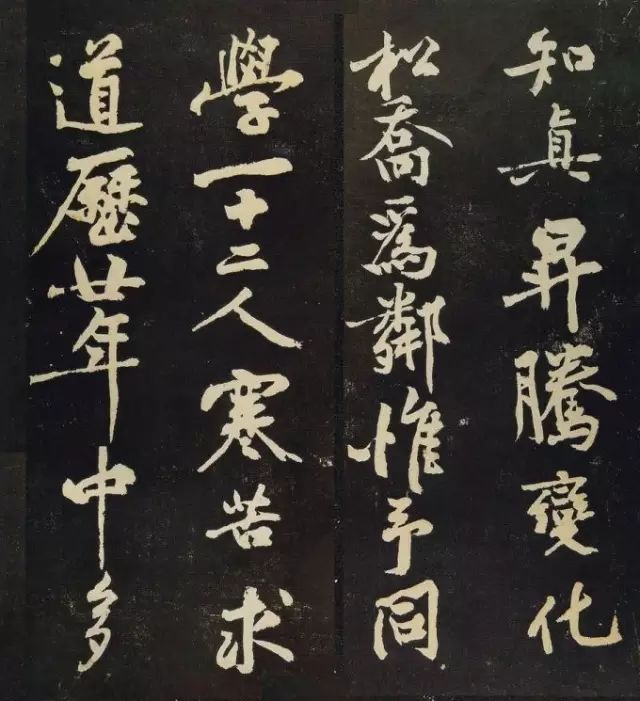 知真昇騰變化
松喬為鄰惟予同
學一十二人寒苦求
道歷廿年中多